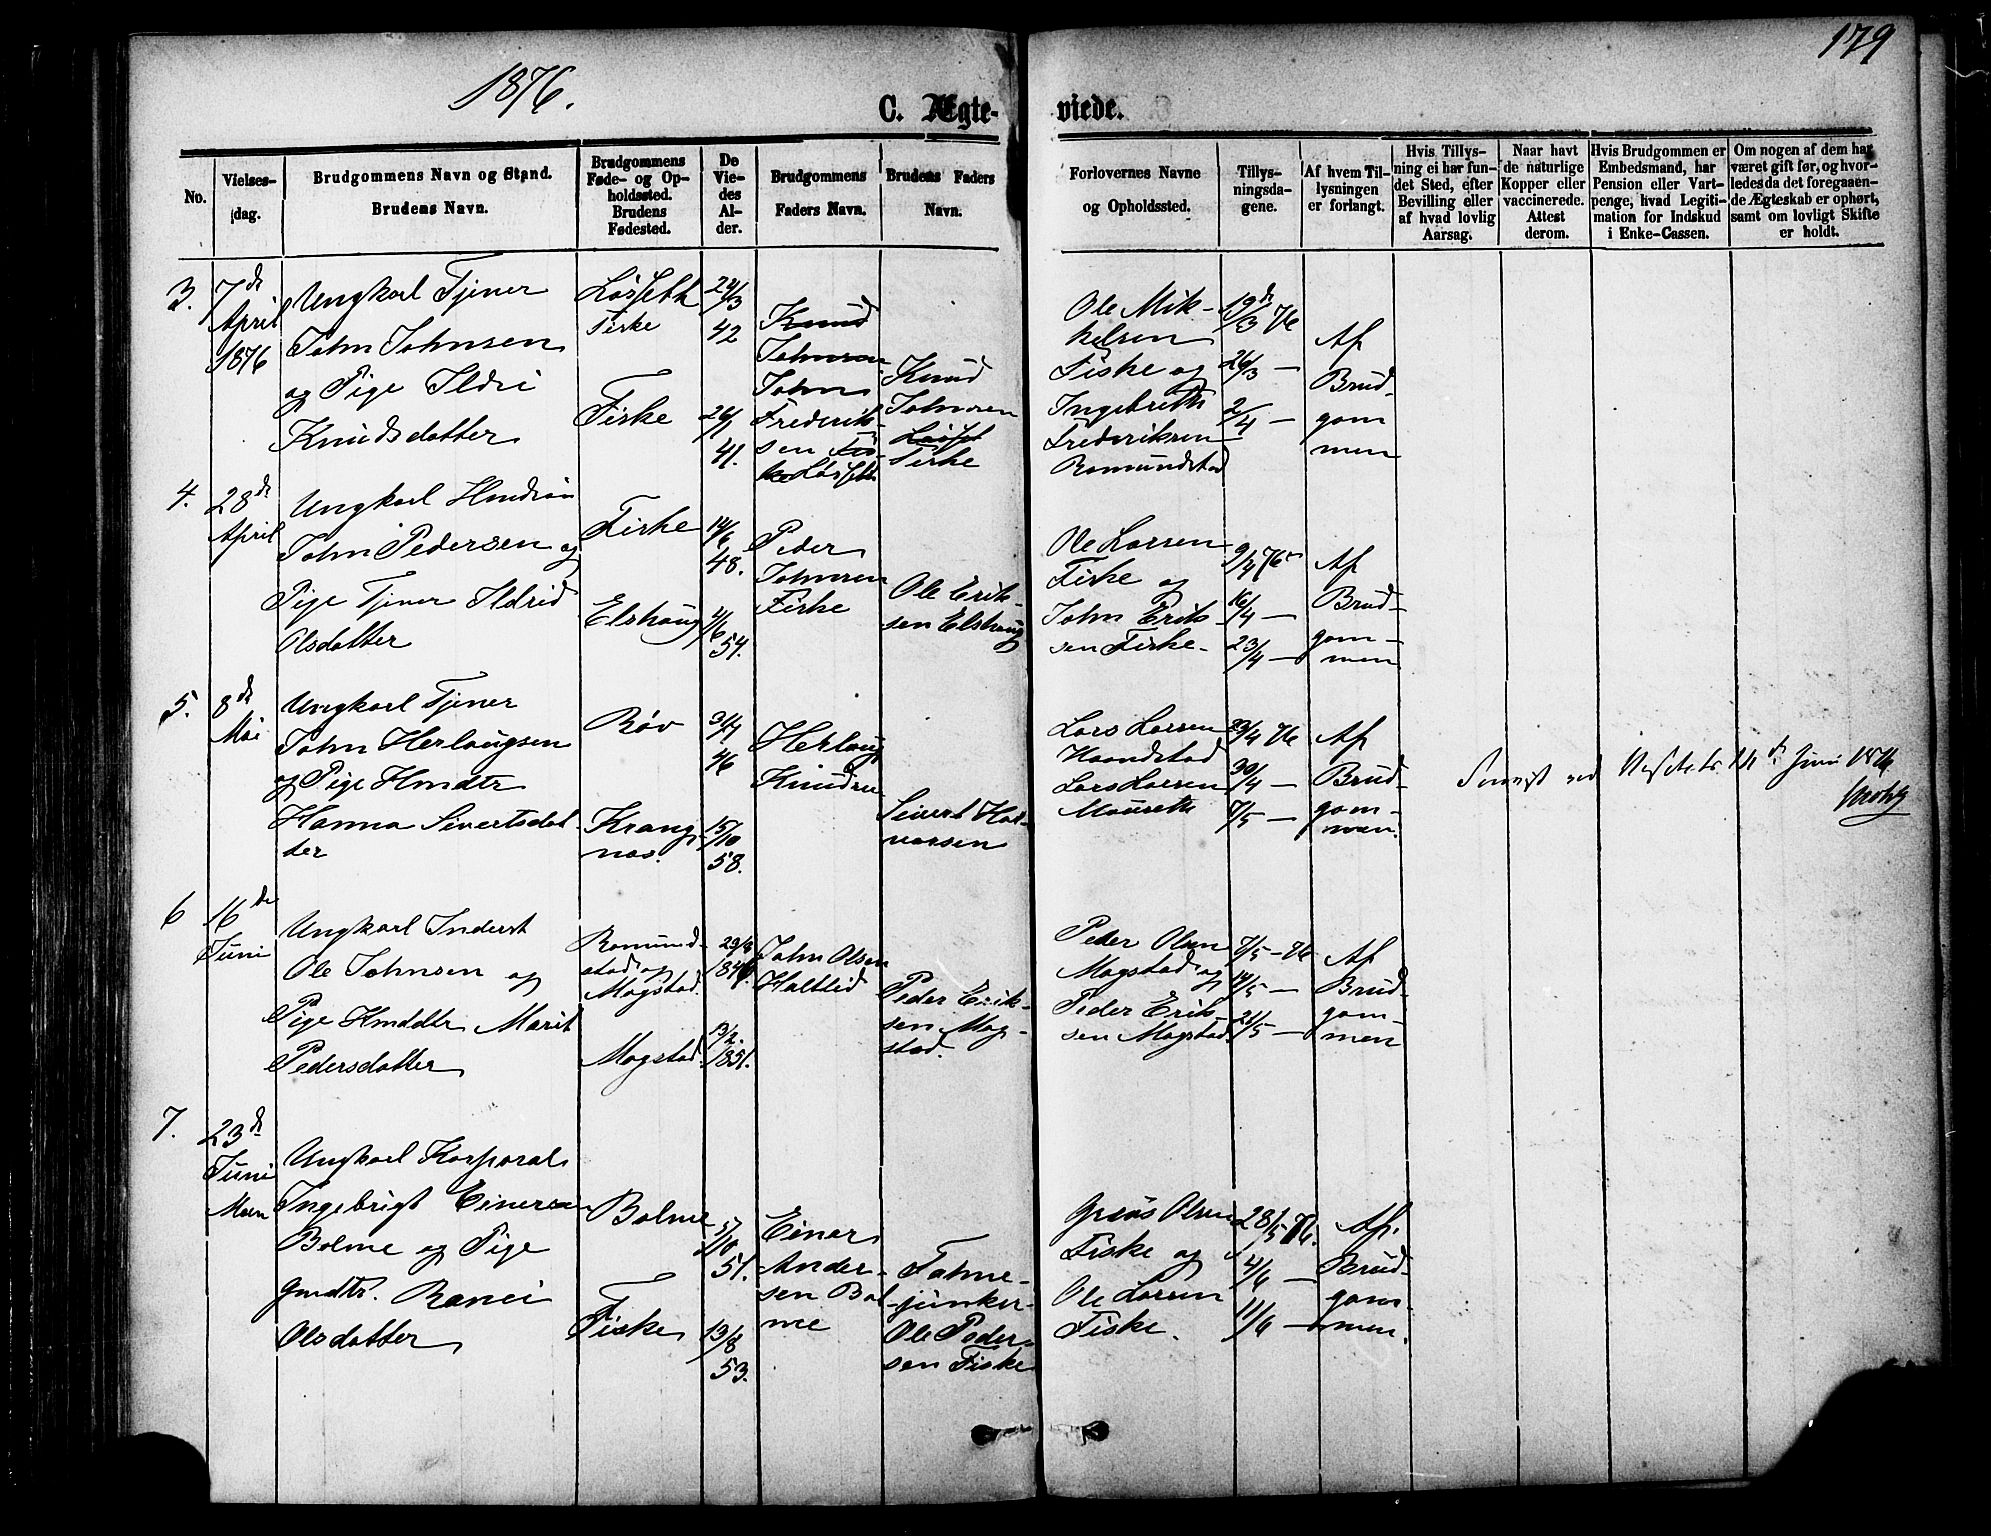 1876.
179
C. Ægte-
viede.
No.
Vielses-
dag.
Brudgommens Navn og Stand.
Brudens Navn.
Brudgommens
Føde- og Op-
holdssted.
Brudens
Fødested.
De
Vie-
des
Al-
der.
Brudgommens
Faders Navn.
Brudens Faders
Navn.
Forlovernes Navne
og Opholdssted.
Tillys-
ningsda-
gene.
Af hvem Til-
lysningen
er forlangt.
Hvis Tillys-
ning ei har fun-
det Sted, efter
Bevilling eller
af hvad lovlig
Aarsag.
Naar havt
de naturlige
Kopper eller
vaccinerede.
Attest
derom.
Hvis Brudgommen er
Embedsmand, har
Pension eller Vart-
penge, hvad Legiti-
mation for Indskud
i Enke-Cassen.
Om nogen af dem har
været gift før, og hvor-
ledes da det foregaaen-
de Ægteskab er ophørt,
samt om lovligt Skifte
er holdt.
3.
7de
April
1876
Ungkarl Tjener
John Johnsen
og Pige Ildri
Knudsdatter
Løsseth
Fiske
Fiske
24/3
42
26/1
41.
Knud
Johnsen
John
Frederik-
sen Fis-
ke Løsseth
Knud
Johnsen
Løset
Fiske
Ole Mik-
kelsen
Fiske og
Ingebreth
Frederiksen
Romundstad
19de/3 76
26/3 —
2/4 —
Af
Brud-
gom
men
4.
28de
April
Ungkarl
John Pedersen og
Pige Tjener Ildrid
Olsdatter
Fiske
Elshaug
14/6
48.
/6
54.
Peder
Johnsen
Fiske
Ole Erik-
sen Elshaug
Ole Larsen
Fiske og
John Erik-
sen Fiske-
9/4 76
16/4 —
23/4 —
Af
Brud-
gom-
men
5.
8de
Mai
Ungkarl Tjener
John Herlaugsen
og Pige Hmdtr
Hanna Sivertsdat-
ter
Røv
Krang-
nas.
46
15/10
58.
Herlaug
Knudsen
Sivert Hal-
varsen
Lars Larsen
Haandstad
Lars Larsen
Maureth
23/4 76
30/4 —
7/5 —
Af
Brud-
gom-
men.
Juni 1876
6
16de
Juni
Ungkarl Inderst
Ole Johnsen og
Pige Hmddtr Marit
Pedersdatter
Romund-
stad og
Mogstad.
Mogstad.
13/2
1851.
John Olsen
Halttid
Peder Erik-
sen Mog-
stad.
Peder Olsen
Mogstad og
Peder Erik-
sen Mogstad.
7/5 - 76
14/5 —
21/5 —
Af
Brud-
gom-
men
7.
23de
Juni
Moen
Ungkarl Korporal
Ingebrigt Einersen
Bolme og Pige
Gmdtr. Ranei
Olsdatter
Bolme
Fiske
5/10
51.
13/8
53.
Einer
Ander-
sen Bol-
me
Fahne-
junker
Ole Peder-
sen Fiske
Olsen
Fiske og
Ole Larsen
Fiske.
28/5 76.
4/6 —
11/6 —
Af.
Brud-
gom-
men.